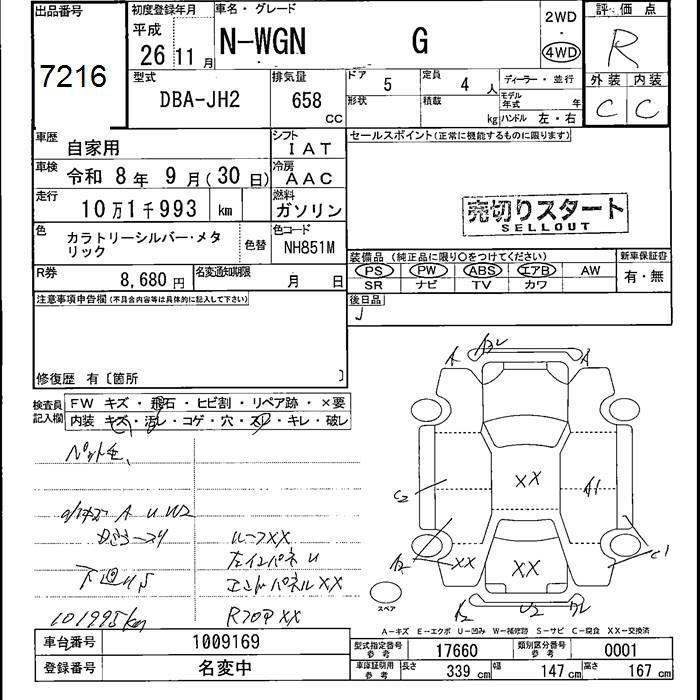 出品番号
7216
初度登録年月
平成
26年 11月
車名・グレード
N-WGN G
2WD
・
4WD
評価点
R
外装 内装
C C
型式
DBA-JH2
排気量
658
CC
ドア 5
定員 4 人
形状
積載 kg
ディーラー・並行
モデル年式 年
ハンドル 左・右
車歴
自家用
シフト
IAT
車検
令和 8年 9月(30日)
冷房
AAC
走行
10万1千993 km
燃料
ガソリン
色
カラトリーシルバー・メタ
リック
色替
色コード
NH851M
R券
8,680円
名変通知期限
月 日
セールスポイント(正常に機能するものに限ります)
売切りスタート
SELLOUT
装備品(純正品に限り○をつけてください)
新車保証書
PS PW ABS エアB AW
有・無
SR ナビ TV カワ
後日品
注意事項申告欄(不具合内容等は具体的に記入して下さい)
修復歴 有〔箇所 〕
検査員
記入欄
FW キズ・飛石・ヒビ割・リペア跡・×要
内装 キズ・汚レ・コゲ・穴・スレ・キレ・破レ
A A
XX
C2 A1
XX XX
C1
スペア
ルーフXX
左インパネU
エンドパネルXX
RフロアXX
101995km
A-キズ E-エクボ U-凹み W-補修跡 S-サビ C-腐食 XX-交換済
車台番号
1009169
登録番号
名変中
型式指定番号
参考
17660
類別区分番号
参考
0001
車庫証明用
参考
長さ 339 cm
幅 147 cm
高さ 167 cm